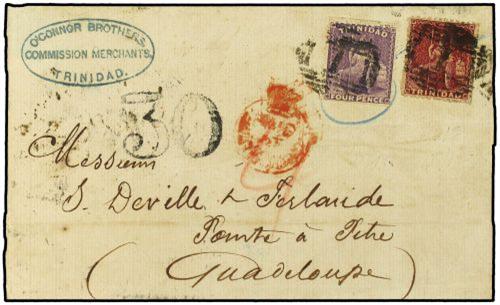 O'CONNOR BROTHERS,
COMMISSION MERCHANTS,
TRINIDAD.
TRINIDAD
FOUR PENCE
TRINIDAD
30
Messieurs
S. Deville &
Pointe à Pitre
(Guadeloupe)